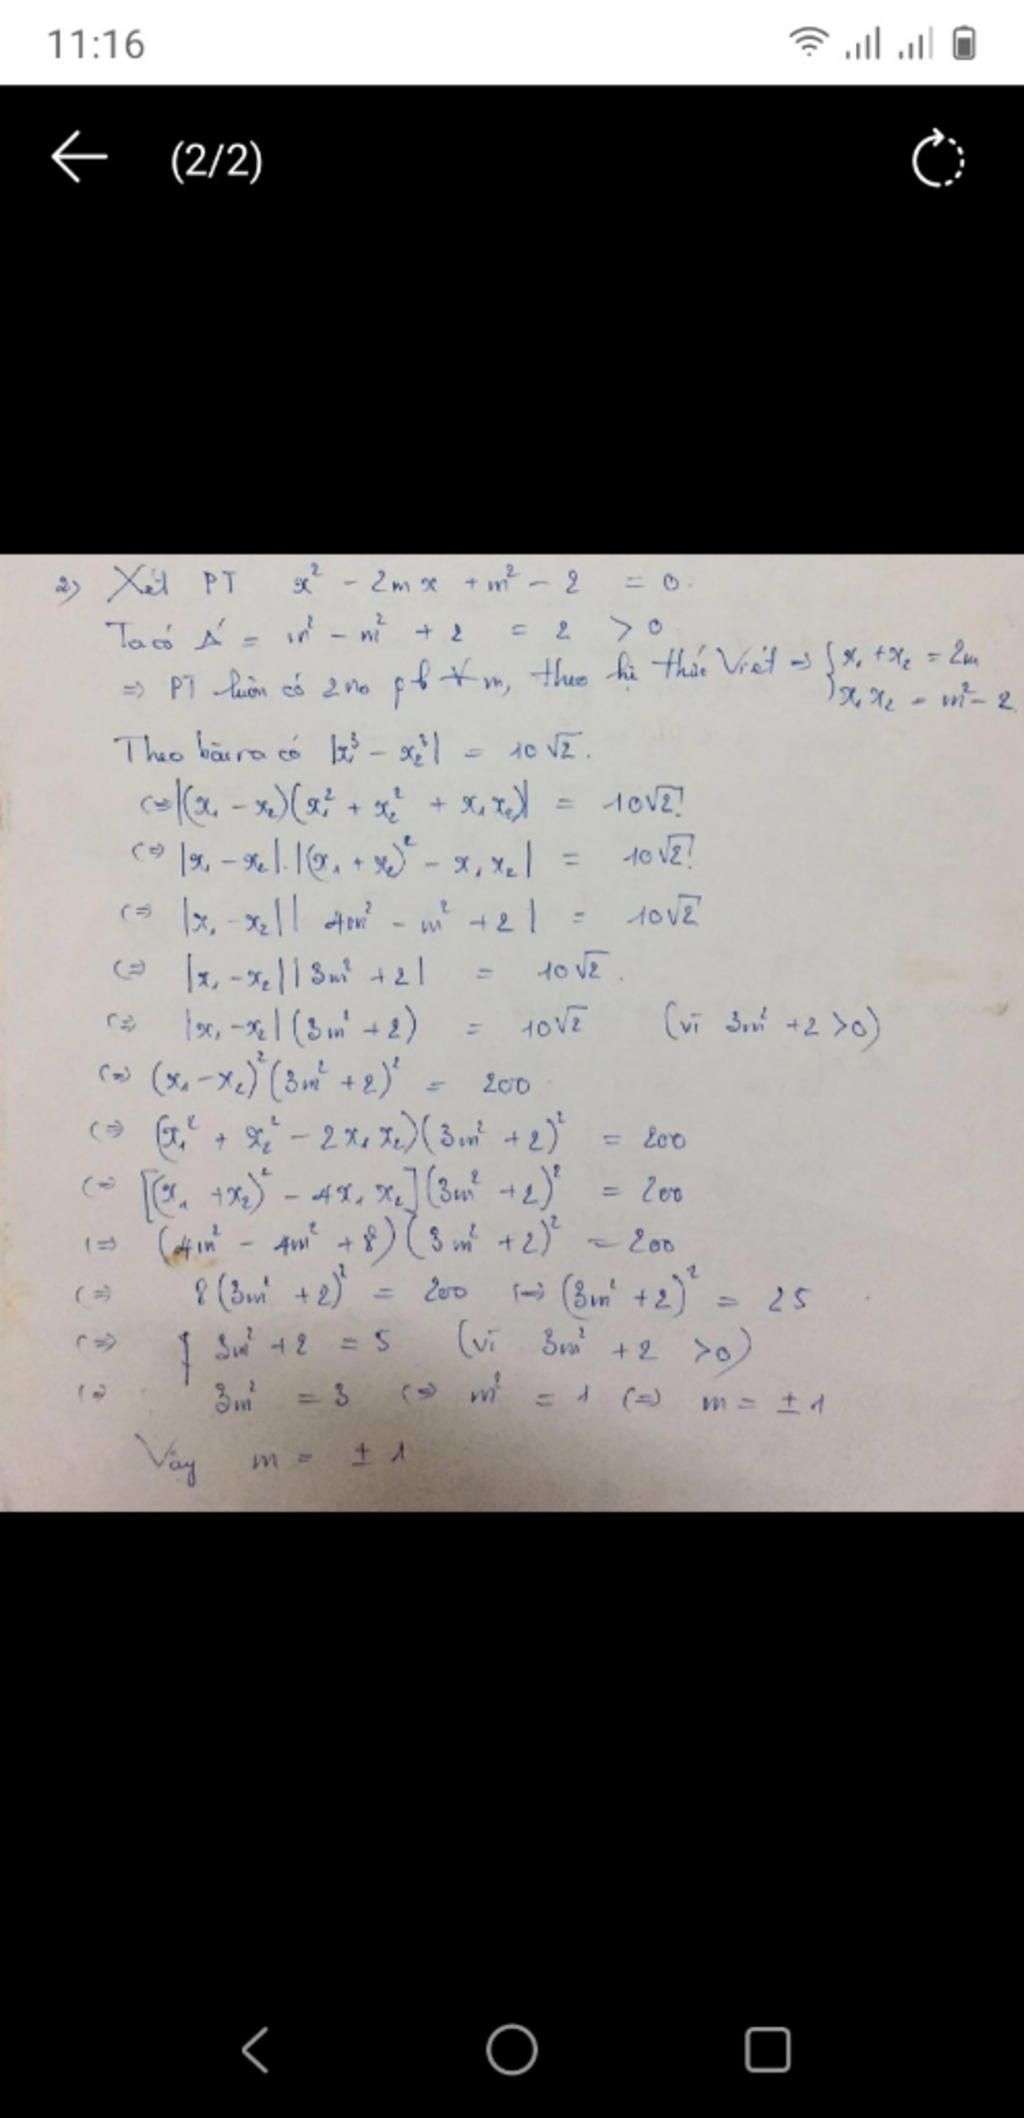 11:16
(2/2)
2) Xét PT x² - 2mx + m² - 2 = 0.
Ta có Δ' = m² - m² + 2 = 2 > 0
=> PT luôn có 2 no pb ∀ m, theo hệ thức Viét => { x₁ + x₂ = 2m
x₁x₂ = m² - 2
Theo bài ra có |x₁³ - x₂³| = 10√2.
<=> |(x₁ - x₂)(x₁² + x₂² + x₁x₂)| = 10√2
<=> |x₁ - x₂|.|(x₁ + x₂)² - x₁x₂| = 10√2
<=> |x₁ - x₂|| 4m² - m² + 2| = 10√2
<=> |x₁ - x₂||3m² + 2| = 10√2.
<=> |x₁ - x₂|(3m² + 2) = 10√2 (vì 3m² + 2 > 0)
<=> (x₁ - x₂)²(3m² + 2)² = 200
<=> (x₁² + x₂² - 2x₁x₂)(3m² + 2)² = 200
<=> [(x₁ + x₂)² - 4x₁x₂](3m² + 2)² = 200
<=> (4m² - 4m² + 8)(3m² + 2)² = 200
<=> 8(3m² + 2)² = 200 <=> (3m² + 2)² = 25
<=> { 3m² + 2 = 5 (vì 3m² + 2 > 0)
<=> 3m² = 3 <=> m² = 1 <=> m = ± 1
Vậy m = ± 1